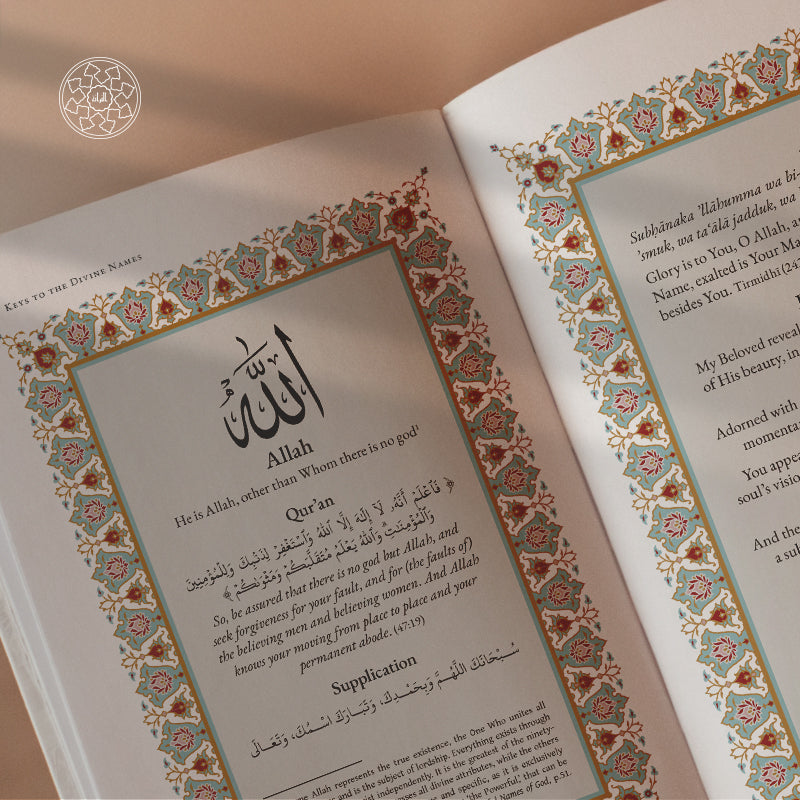 Keys to the Divine Names
الله
Allah
He is Allah, other than Whom there is no god¹
Qur'an
﴿ فَٱعْلَمْ أَنَّهُۥ لَآ إِلَٰهَ إِلَّا ٱللَّهُ وَٱسْتَغْفِرْ لِذَنۢبِكَ وَلِلْمُؤْمِنِينَ
وَٱلْمُؤْمِنَٰتِ ۗ وَٱللَّهُ يَعْلَمُ مُتَقَلَّبَكُمْ وَمَثْوَىٰكُمْ ﴾
So, be assured that there is no god but Allah, and
seek forgiveness for your fault, and for (the faults of)
the believing men and believing women. And Allah
knows your moving from place to place and your
permanent abode. (47:19)
Supplication
سُبْحَانَكَ اللَّهُمَّ وَبِحَمْدِكَ، وَتَبَارَكَ اسْمُكَ، وَتَعَالَى
me Allah represents the true existence, the One Who unites all
and is the subject of lordship. Everything exists through
independently. It is the greatest of the ninety-
all divine attributes, while the others
and specific, as it is exclusively
'the Powerful,' that can
Names of God, p.51.
Subḥānaka 'llāhumma wa bi-
'smuk, wa ta'ālā jadduk, wa
Glory is to You, O Allah, a
Name, exalted is Your Ma
besides You. Tirmidhī (24
My Beloved reveal
of His beauty, in
Adorned with
momenta
You appea
soul's visio
And the
a su